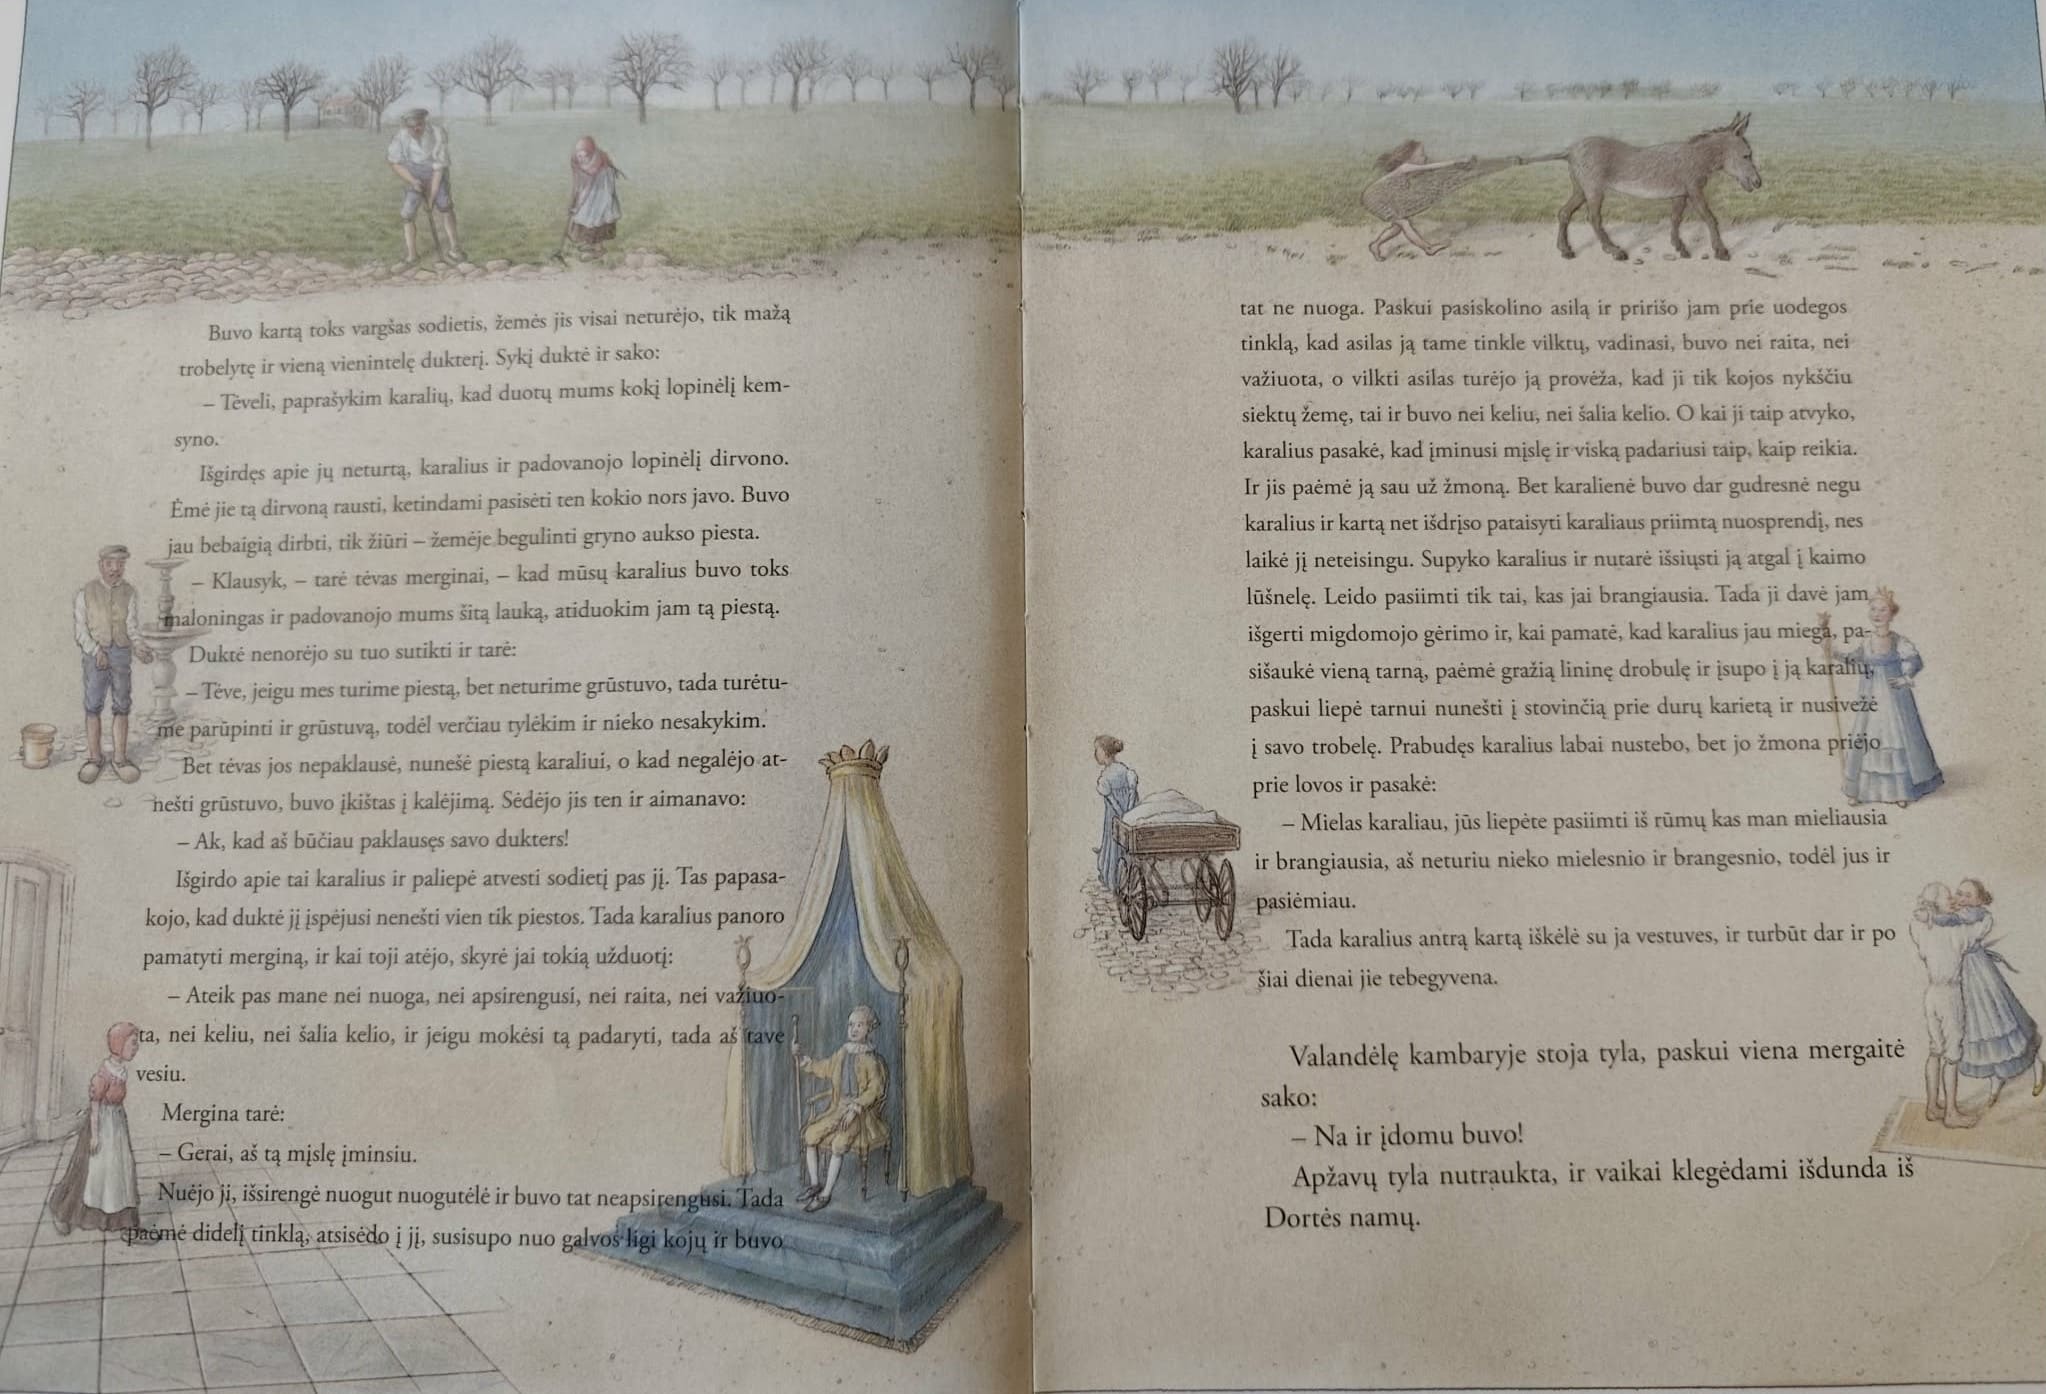 Buvo kartą toks vargšas sodietis, žemės jis visai neturėjo, tik mažą
trobelytę ir vieną vienintelę dukterį. Sykį duktė ir sako:
– Tėveli, paprašykim karalių, kad duotų mums kokį lopinėlį kem-
syno.
Išgirdęs apie jų neturtą, karalius ir padovanojo lopinėlį dirvono.
Ėmė jie tą dirvoną rausti, ketindami pasisėti ten kokio nors javo. Buvo
jau bebaigią dirbti, tik žiūri – žemėje begulinti gryno aukso piesta.
– Klausyk, – tarė tėvas merginai, – kad mūsų karalius buvo toks
maloningas ir padovanojo mums šitą lauką, atiduokim jam tą piestą.
Duktė nenorėjo su tuo sutikti ir tarė:
– Tėve, jeigu mes turime piestą, bet neturime grūstuvo, tada turėtu-
me parūpinti ir grūstuvą, todėl verčiau tylėkim ir nieko nesakykim.
Bet tėvas jos nepaklausė, nunešė piestą karaliui, o kad negalėjo at-
nešti grūstuvo, buvo įkištas į kalėjimą. Sėdėjo jis ten ir aimanavo:
– Ak, kad aš būčiau paklausęs savo dukters!
Išgirdo apie tai karalius ir paliepė atvesti sodietį pas jį. Tas papasa-
kojo, kad duktė jį įspėjusi nenešti vien tik piestos. Tada karalius panoro
pamatyti merginą, ir kai toji atėjo, skyrė jai tokią užduotį:
– Ateik pas mane nei nuoga, nei apsirengusi, nei raita, nei važiuo-
ta, nei keliu, nei šalia kelio, ir jeigu mokėsi tą padaryti, tada aš tave
vesiu.
Mergina tarė:
– Gerai, aš tą mįslę įminsiu.
Nuėjo ji, išsirengė nuogut nuogutėlė ir buvo tat neapsirengusi. Tada
paėmė didelį tinklą, atsisėdo į jį, susisupo nuo galvos ligi kojų ir buvo
tat ne nuoga. Paskui pasiskolino asilą ir pririšo jam prie uodegos
tinklą, kad asilas ją tame tinkle vilktų, vadinasi, buvo nei raita, nei
važiuota, o vilkti asilas turėjo ją provėža, kad ji tik kojos nykščiu
siektų žemę, tai ir buvo nei keliu, nei šalia kelio. O kai ji taip atvyko,
karalius pasakė, kad įminusi mįslę ir viską padariusi taip, kaip reikia.
Ir jis paėmė ją sau už žmoną. Bet karalienė buvo dar gudresnė negu
karalius ir kartą net išdrįso pataisyti karaliaus priimtą nuosprendį, nes
laikė jį neteisingu. Supyko karalius ir nutarė išsiųsti ją atgal į kaimo
lūšnelę. Leido pasiimti tik tai, kas jai brangiausia. Tada ji davė jam
išgerti migdomojo gėrimo ir, kai pamatė, kad karalius jau miega, pa-
sišaukė vieną tarną, paėmė gražią lininę drobulę ir įsupo į ją karalių,
paskui liepė tarnui nunešti į stovinčią prie durų karietą ir nusivežė
į savo trobelę. Prabudęs karalius labai nustebo, bet jo žmona priėjo
prie lovos ir pasakė:
– Mielas karaliau, jūs liepėte pasiimti iš rūmų kas man mieliausia
ir brangiausia, aš neturiu nieko mielesnio ir brangesnio, todėl jus ir
pasiėmiau.
Tada karalius antrą kartą iškėlė su ja vestuves, ir turbūt dar ir po
šiai dienai jie tebegyvena.
Valandėlę kambaryje stoja tyla, paskui viena mergaitė
sako:
– Na ir įdomu buvo!
Apžavų tyla nutraukta, ir vaikai klegėdami išdunda iš
Dortės namų.